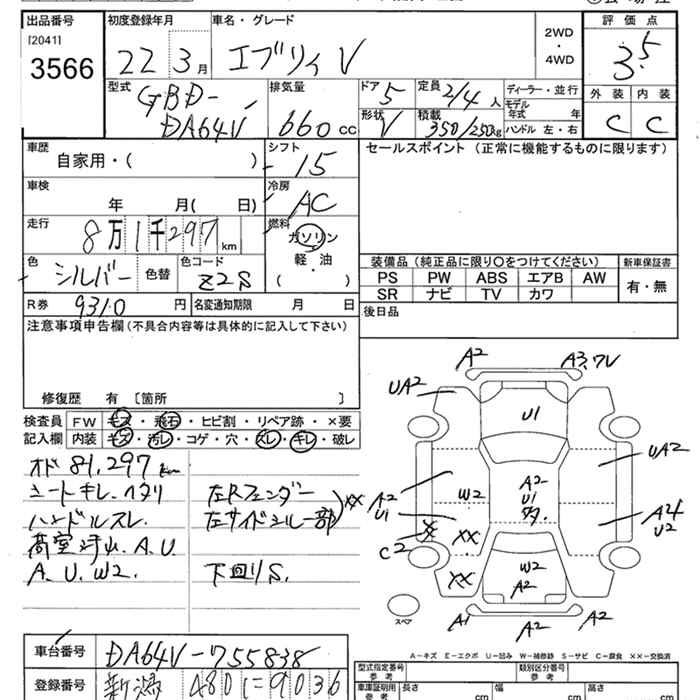 出品番号 初度登録年月 車名・グレード 評価点
[2041] 22 3月 エブリィV 2WD・4WD 3.5
3566
型式 GBD-DA64V 排気量 660cc ドア 5 定員 2/4人 ディーラー・並行 外装 内装
形状 V 積載 350/250kg モデル年式 年 C C
ハンドル 左・右
車歴 自家用・( ) シフト 15 セールスポイント (正常に機能するものに限ります)
車検 年 月( 日) 冷房 AC
走行 8万1千297km 燃料 ガソリン
軽・油
( )
色 シルバー 色替 色コード Z2S
装備品 (純正品に限り○をつけてください) 新車保証書
PS PW ABS エアB AW 有・無
SR ナビ TV カワ
R券 9310円 名変通知期限 月 日 後日品
注意事項申告欄(不具合内容等は具体的に記入して下さい)
修復歴 有 〔箇所 〕
検査員 FW キズ・飛石・ヒビ割・リペア跡・×要
記入欄 内装 キズ・汚レ・コゲ・穴・スレ・キレ・破レ
オド 81,297km
シートキレ.ヘタリ 左Rフェンダー
ハンドルスレ. 左サイドシル一部 XX
A.U.
A.U.W2. 下回りS.
A2 A3.7V
UA2 U1
UA2
A2 W2 A2 A4
U1 U1 U2
X XX
C2
XX W2
A2
スペア A1 A2 A2
A-キズ E-エクボ U-凹ミ W-補修跡 S-サビ C-腐食 XX-交換済
車台番号 DA64V-755838
登録番号 新潟 480 に 9036
型式指定番号 類別区分番号
参考 参考
車庫証明用 長さ 幅 高さ
参考 cm cm cm